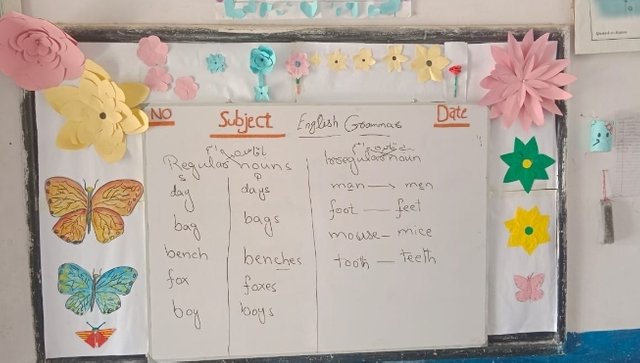 NO Subject English Grammar Date
Regular nouns
Irregular noun
S P
day days
bag bags
bench benches
fox foxes
boy boys
man → men
foot — feet
mouse — mice
tooth — teeth